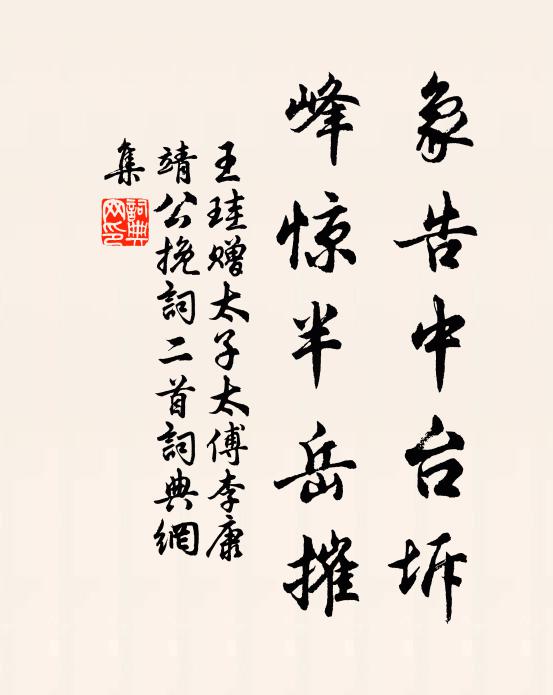 象告中台坼
峰惊半岳摧
王珪赠太子太傅李康
靖公挽詞二首詞典網
集
詞典
网印